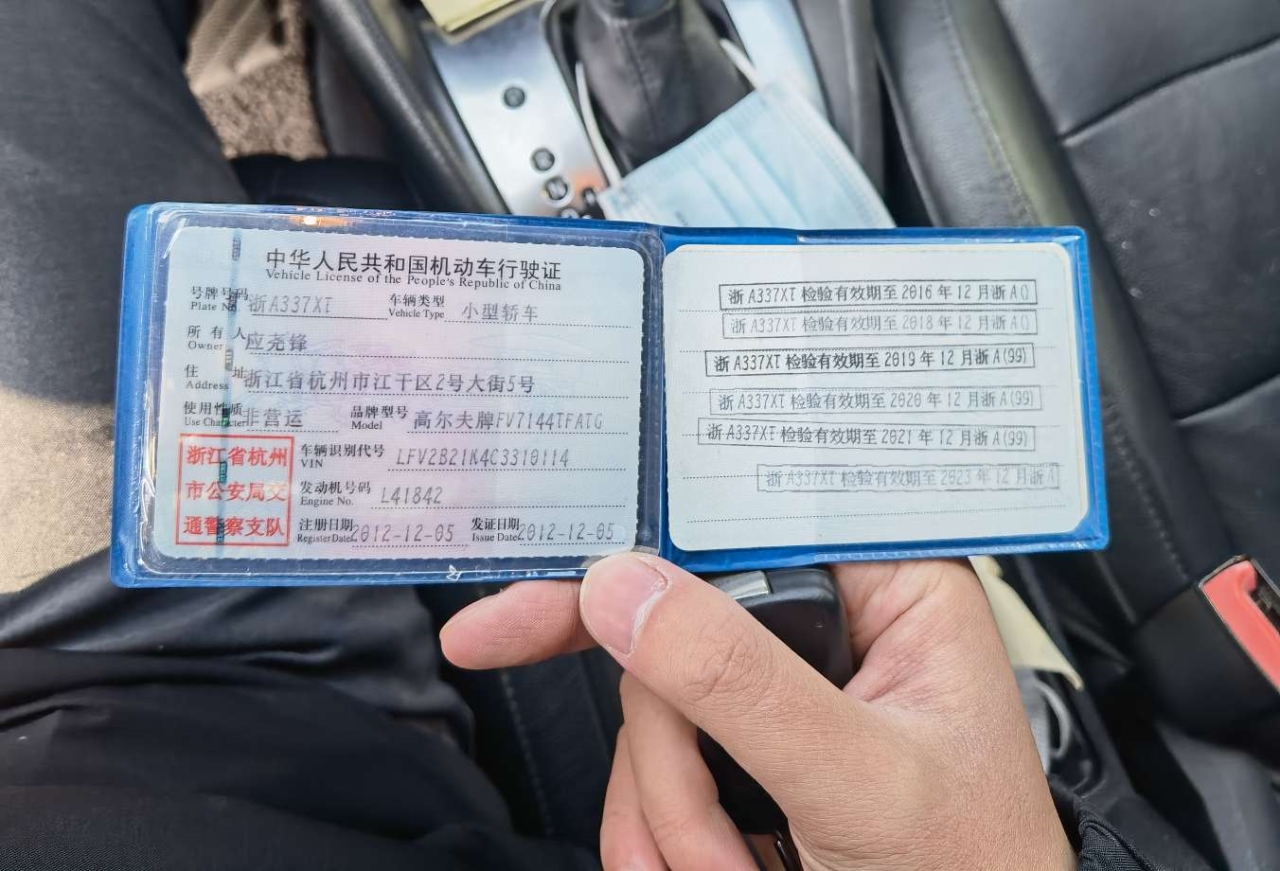 中华人民共和国机动车行驶证
Vehicle License of the People's Republic of China
号牌号码 浙A337XT 车辆类型 小型轿车
Plate No. Vehicle Type
所有人 应尧锋
Owner
住址 浙江省杭州市江干区2号大街5号
Address
使用性质 非营运 品牌型号 高尔夫牌FV7144TFATG
Use Character Model
浙江省杭州
市公安局交
通警察支队
车辆识别代号 LFV2B21K4C3310114
VIN
发动机号码 L41842
Engine No.
注册日期 2012-12-05 发证日期 2012-12-05
Register Date Issue Date
浙A337XT检验有效期至2016年12月浙A()
浙A337XT检验有效期至2018年12月浙A()
浙A337XT检验有效期至2019年12月浙A(99)
浙A337XT检验有效期至2020年12月浙A(99)
浙A337XT检验有效期至2021年12月浙A(99)
浙A337XT检验有效期至2023年12月浙A